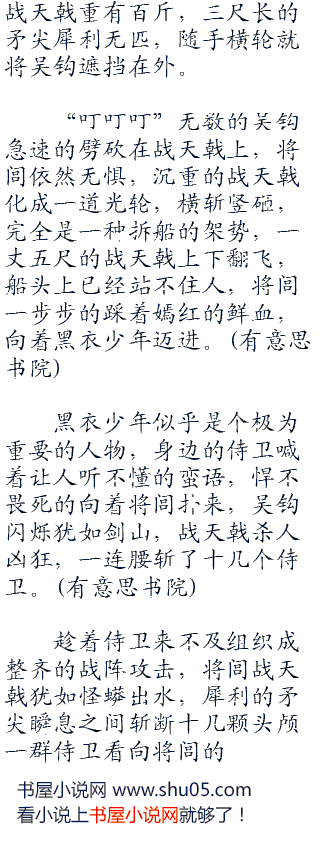 战天戟重有百斤，三尺长的
矛尖犀利无匹，随手横轮就
将吴钩遮挡在外。
“叮叮叮”无数的吴钩
急速的劈砍在战天戟上，将
闾依然无惧，沉重的战天戟
化成一道光轮，横斩竖砸，
完全是一种拆船的架势，一
丈五尺的战天戟上下翻飞，
船头上已经站不住人，将闾
一步步的踩着嫣红的鲜血，
向着黑衣少年迈进。(有意思
书院)
黑衣少年似乎是个极为
重要的人物，身边的侍卫喊
着让人听不懂的蛮语，悍不
畏死的向着将闾扑来，吴钩
闪烁犹如剑山，战天戟杀人
凶狂，一连腰斩了十几个侍
卫。(有意思书院)
趁着侍卫来不及组织成
整齐的战阵攻击，将闾战天
戟犹如怪蟒出水，犀利的矛
尖瞬息之间斩断十几颗头颅
一群侍卫看向将闾的
书屋小说网 www.shu05.com
看小说上书屋小说网就够了！